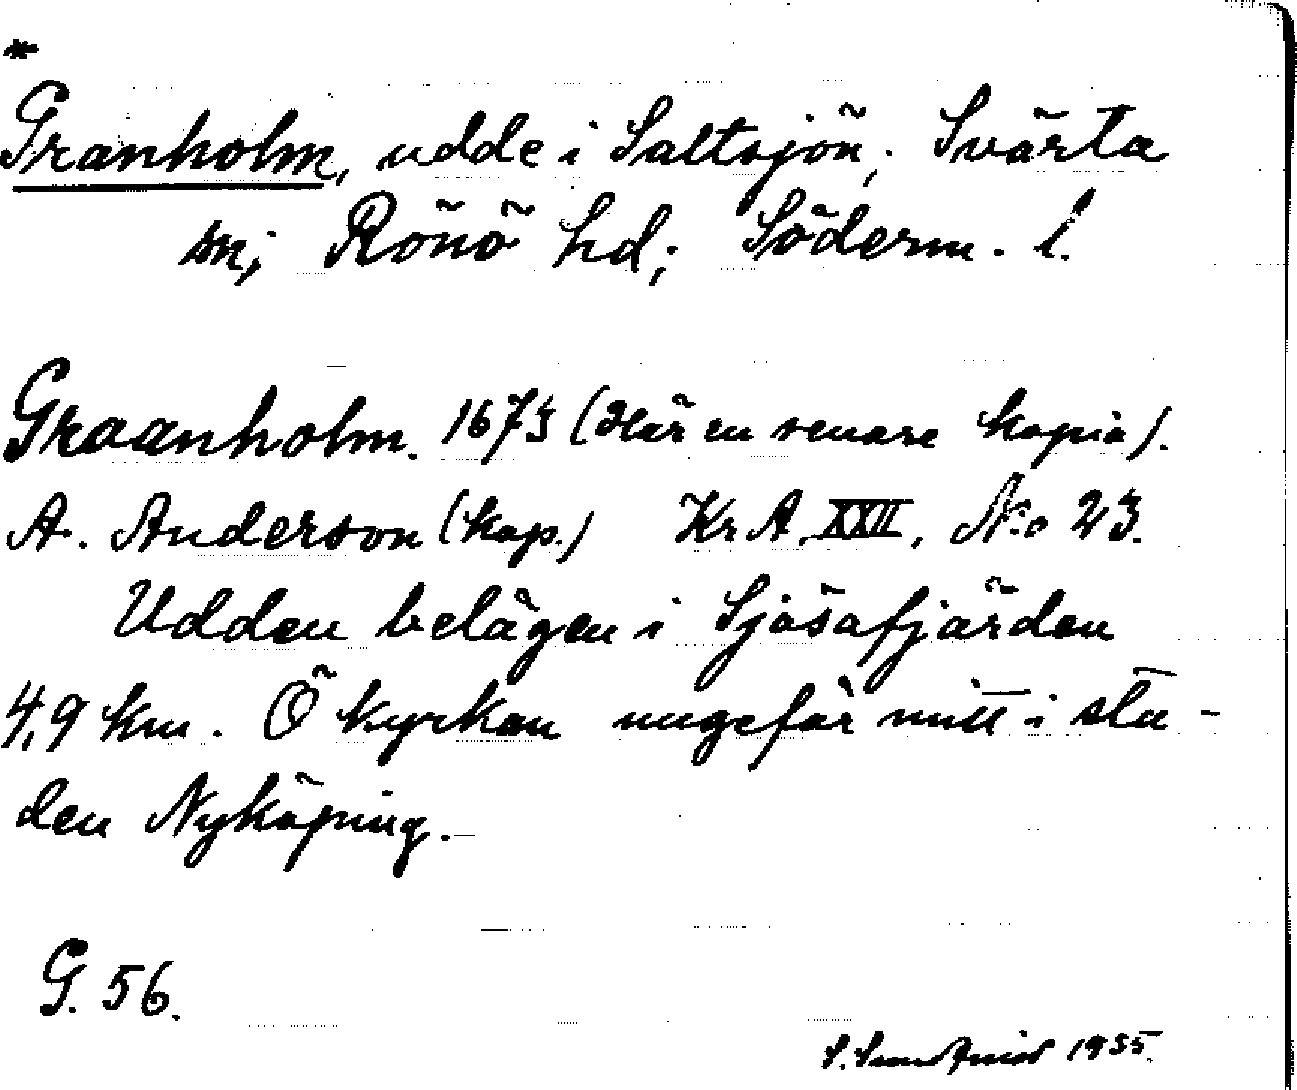 *
Granholm, udde i Saltsjön; Svärta
sn; Rönö hd; Söderm. l.
Graanholm. 1673 (Här en senare kopia).
A. Anderson (kap.) Kr A. XXII, No 23.
Udden belägen i Sjösafjärden
4,9 km. Ö kyrkan ungefär mitt i sta-
den Nyköping.
G. 56.
S. 1935.